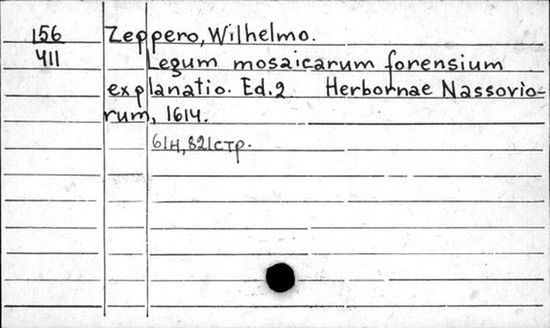 156 Zeppero, Wilhelmo.
411 Legum mosaicarum forensium
explanatio. Ed.2 Herbornae Nassovio-
rum, 1614.
61н, 821стр.